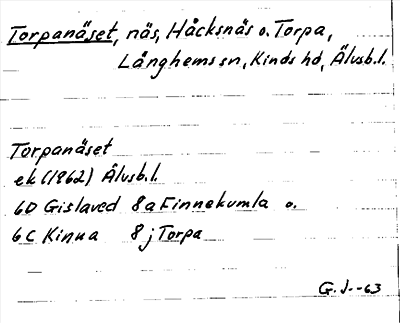 Torpanäset, näs, Håcksnäs o. Torpa,
Långhems sn, Kinds hd, Älvsb.l.
Torpanäset
ek (1962) Älvsb.l.
6D Gislaved 8a Finnekumla o.
6C Kinna 8j Torpa
G.J--63